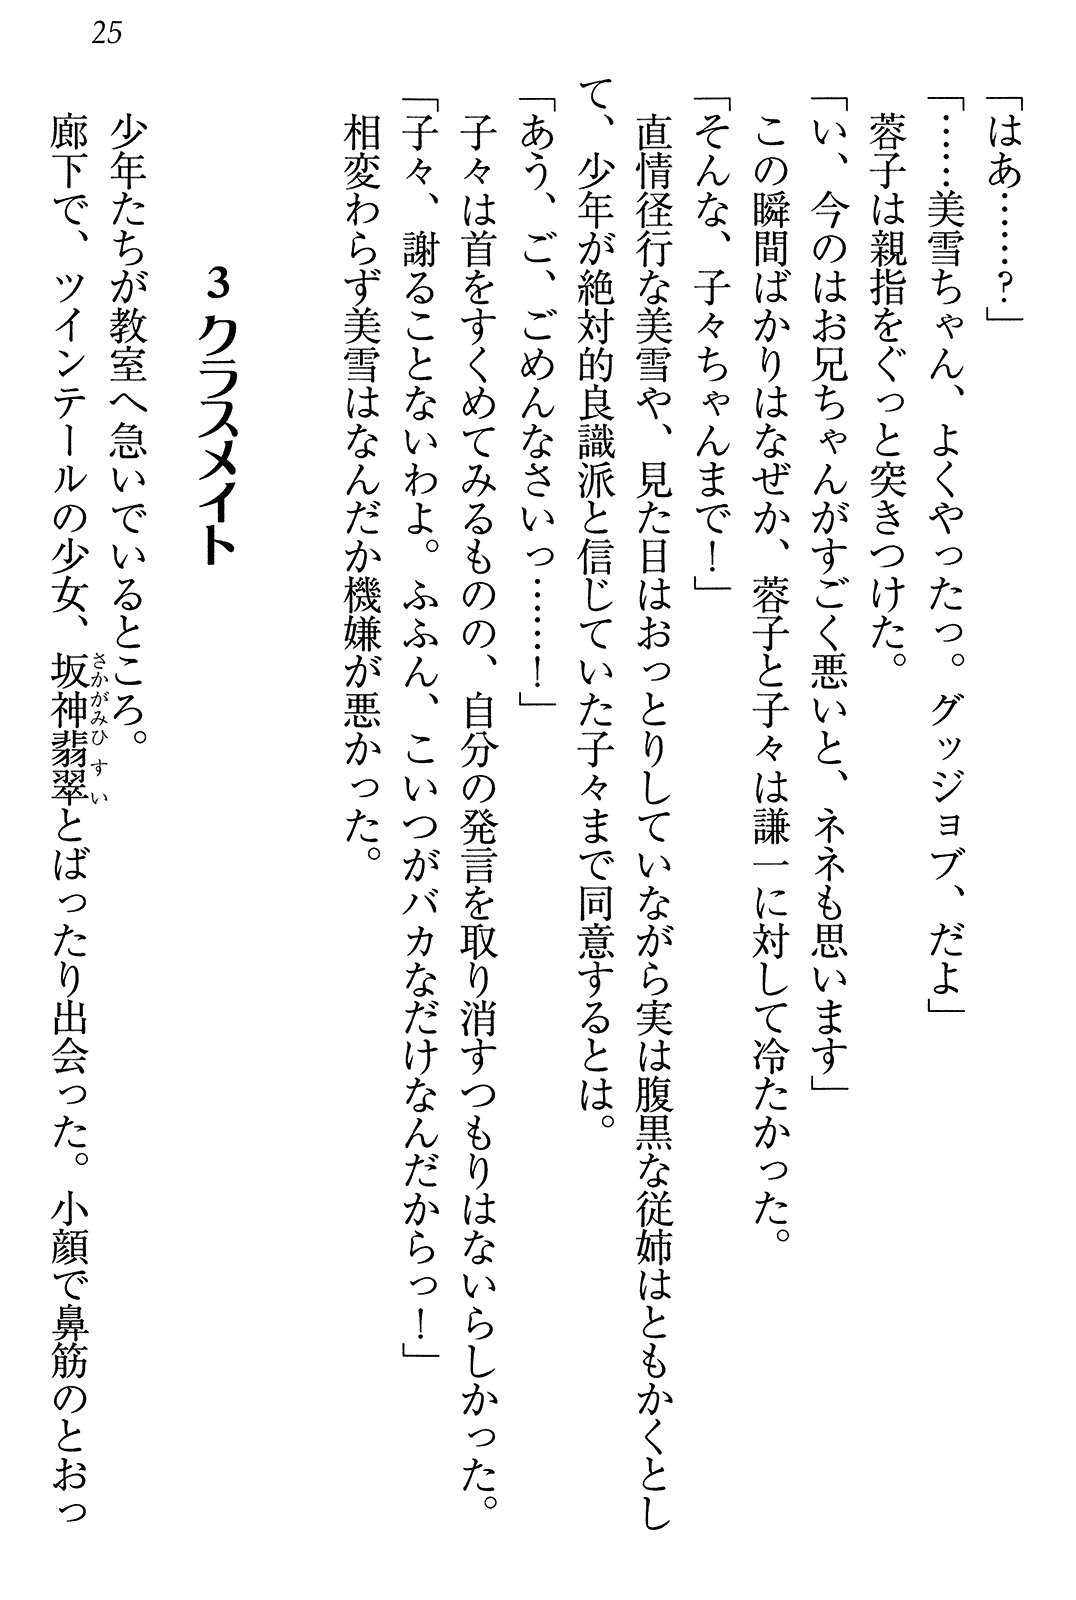 25
「はあ……？」
「……美雪ちゃん、よくやったっ。グッジョブ、だよ」
蓉子は親指をぐっと突きつけた。
「い、今のはお兄ちゃんがすごく悪いと、ネネも思います」
この瞬間ばかりはなぜか、蓉子と子々は謙一に対して冷たかった。
「そんな、子々ちゃんまで！」
直情径行な美雪や、見た目はおっとりしていながら実は腹黒な従姉はともかくとし
て、少年が絶対的良識派と信じていた子々まで同意するとは。
「あう、ご、ごめんなさいっ……！」
子々は首をすくめてみるものの、自分の発言を取り消すつもりはないらしかった。
「子々、謝ることないわよ。ふふん、こいつがバカなだけなんだからっ！」
相変わらず美雪はなんだか機嫌が悪かった。
3 クラスメイト
少年たちが教室へ急いでいるところ。
廊下で、ツインテールの少女、坂神翡翠とばったり出会った。小顔で鼻筋のとおっ
さかがみひすい